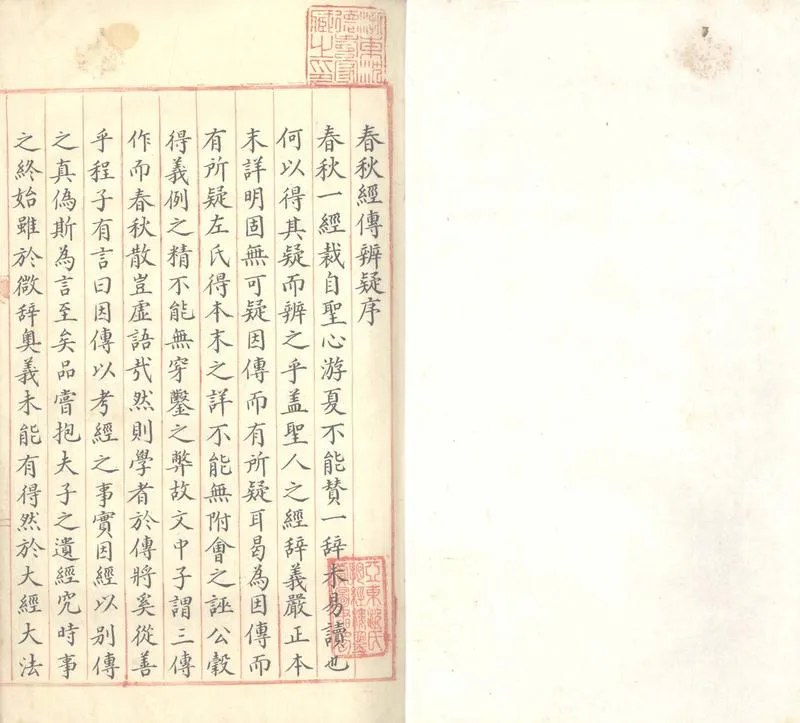 春秋經傳辨疑序
春秋一經裁自聖心游夏不能賛一辞未易讀也
何以得其疑而辨之乎盖聖人之經辞義嚴正本
末詳明固無可疑因傳而有所疑耳曷為因傳而
有所疑左氏得本末之詳不能無附會之誣公糓
得義例之精不能無穿鑿之弊故文中子謂三傳
作而春秋散豈虛語㢤然則學者於傳將奚從善
乎程子有言曰因傳以考經之事實因經以别傳
之真偽斯為言至矣品嘗抱夫子之遺經究時事
之終始雖於微辞奥義未能有得然於大經大法